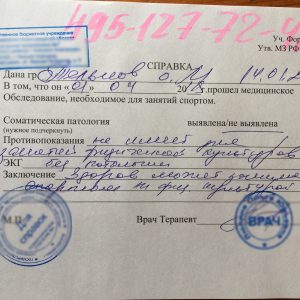 495-127-72-
Уч. Фор
Утв. МЗ РФ
СПРАВКА
Дана гр О.М 14.01.2
В том, что он «01» 04 прошел медицинское
Обследование, необходимое для занятий спортом.
Соматическая патология выявлена/не выявлена
(нужное подчеркнуть)
Противопоказания не имеет для
занятий физической культуров
ЭКГ без патологии
Заключение Здоров может занима
физ культурой
М.П. Врач Терапевт
ВРАЧ